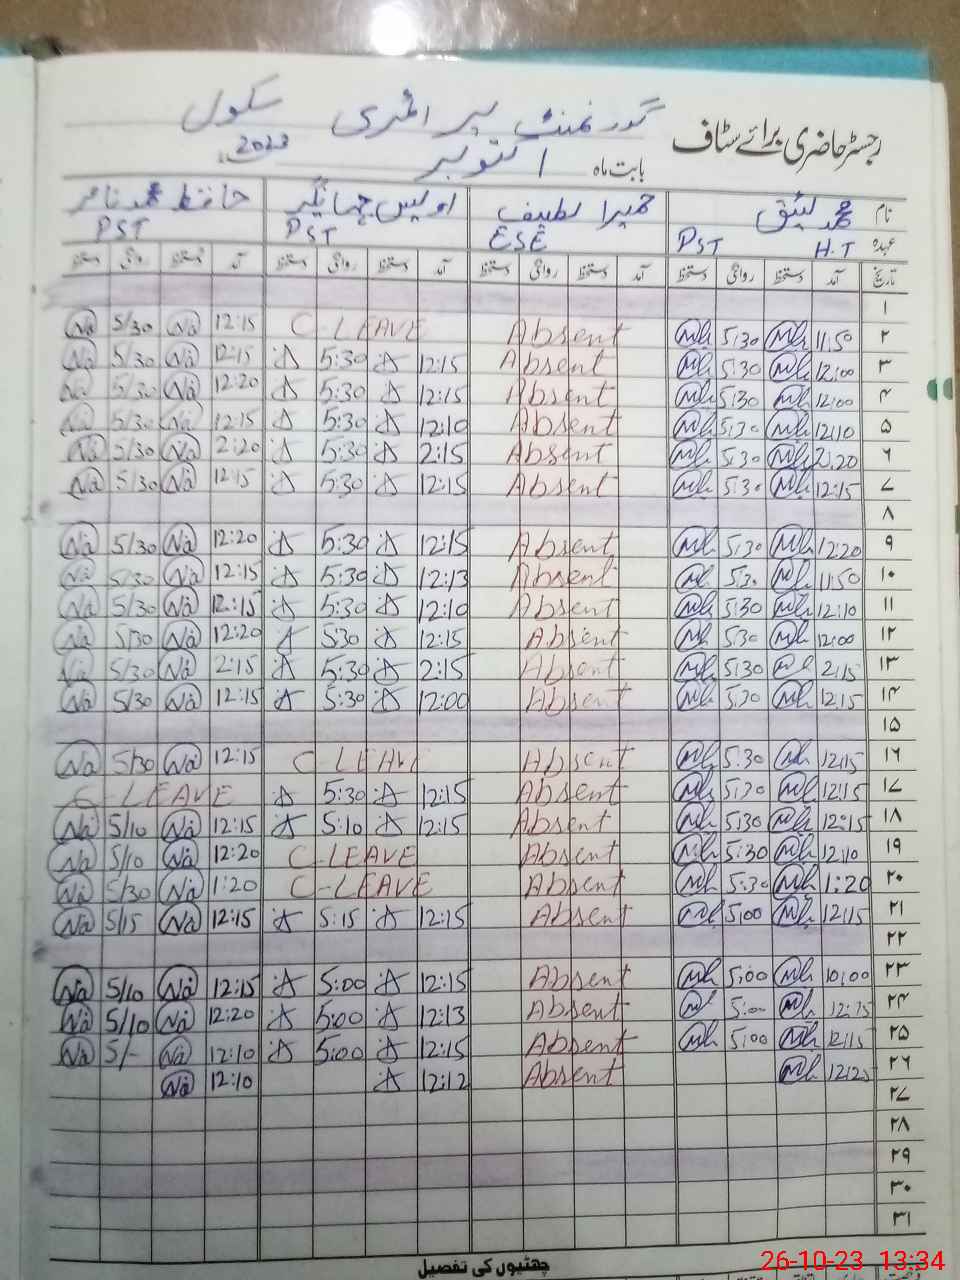 رجسٹر حاضری برائے سٹاف گورنمنٹ پرائمری سکول
بابت ماہ اکتوبر 2023
نام محمد لئیق حمیرا لطیف اویس جہانگیر حافظ محمد عامر
عہدہ H.T PST ESE PST PST
تاریخ آمد دستخط روانگی دستخط آمد دستخط روانگی دستخط آمد دستخط روانگی دستخط آمد دستخط روانگی دستخط
۱
۲ 11:50 5:30 Absent C-LEAVE 12:15 Na 5/30 Na
۳ 12:00 5:30 Absent 12:15 5:30 12:15 Na 5/30 Na
۴ 12:00 5:30 Absent 12:15 5:30 12:20 Na 5/30 Na
۵ 12:10 5:30 Absent 12:10 5:30 12:15 Na 5/30 Na
۶ 2:20 5:30 Absent 2:15 5:30 2:20 Na 5/30 Na
۷ 12:15 5:30 Absent 12:15 5:30 12:15 Na 5/30 Na
۸
۹ 12:20 5:30 Absent 12:15 5:30 12:20 Na 5/30 Na
۱۰ 11:50 5:30 Absent 12:13 5:30 12:15 Na 5/30 Na
۱۱ 12:10 5:30 Absent 12:10 5:30 12:15 Na 5/30 Na
۱۲ 12:00 5:30 Absent 12:15 5:30 12:20 Na 5/30 Na
۱۳ 2:15 5:30 Absent 2:15 5:30 2:15 Na 5/30 Na
۱۴ 12:15 5:30 Absent 12:00 5:30 12:15 Na 5/30 Na
۱۵
۱۶ 12:15 5:30 Absent C-LEAVE 12:15 Na 5/30 Na
۱۷ 12:15 5:30 Absent 12:15 5:30 C-LEAVE
۱۸ 12:15 5:30 Absent 12:15 5:10 12:15 Na 5/10 Na
۱۹ 12:10 5:30 Absent C-LEAVE 12:20 Na 5/10 Na
۲۰ 1:20 5:30 Absent C-LEAVE 1:20 Na 5/30 Na
۲۱ 12:15 5:00 Absent 12:15 5:15 12:15 Na 5/15 Na
۲۲
۲۳ 10:00 5:00 Absent 12:15 5:00 12:15 Na 5/10 Na
۲۴ 12:15 5:00 Absent 12:13 5:00 12:20 Na 5/10 Na
۲۵ 12:15 5:00 Absent 12:15 5:00 12:10 Na 5/- Na
۲۶ 12:25 Absent 12:12 12:10 Na
۲۷
۲۸
۲۹
۳۰
۳۱
چھٹیوں کی تفصیل
26-10-23 13:34